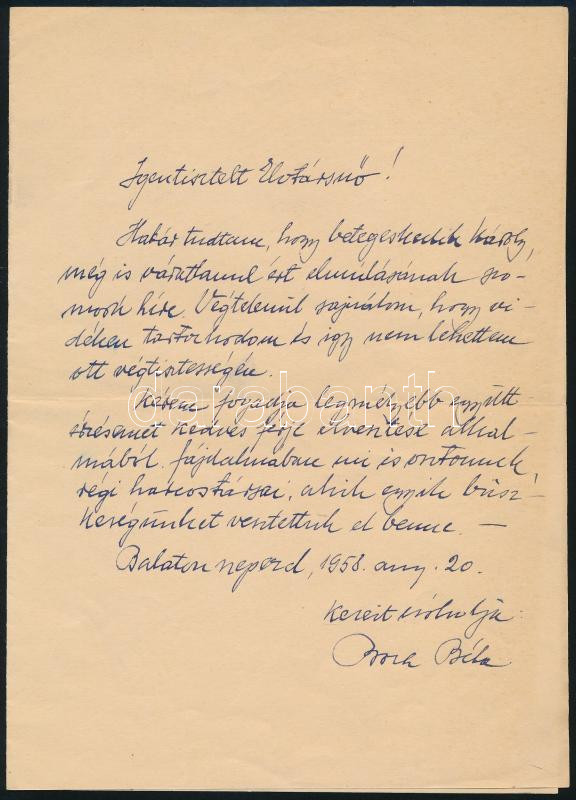 Igentisztelt Elvtársnő!
Habár tudtam, hogy betegeskedik Károly,
még is váratlanul ért elmulásának szo-
morú híre. Végtelenül sajnálom, hogy vi-
déken tartózkodom és igy nem lehettem
ott végtisztességén.
Kérem fogadja legmélyebb együtt-
érzésemet kedves férje elvesztése alkal-
mából. Fájdalmában mi is osztozunk
régi harcostársai, akik egyik büsz-
keségünket vesztettük el benne. —
Balaton, 1958. aug. 20.
Kezeit csókolja:
Béla
darabanth